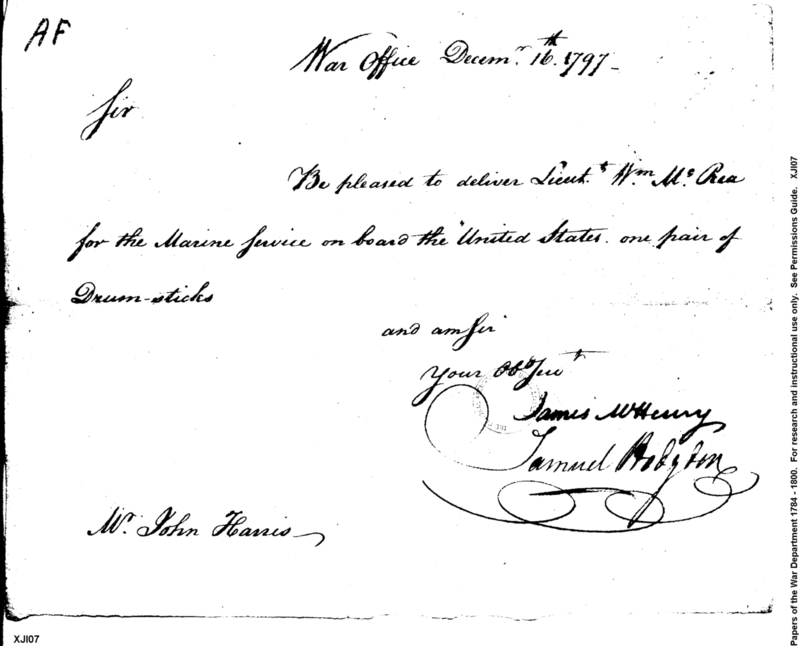 AF
War Office Decemr. 16th. 1797_
Sir
Be pleased to deliver Lieut.t Wm. Mc. Rea
for the Marine Service on board the United States. one pair of
Drum-sticks
and am Sir
Your Obd Servt
James McHenry
Samuel Hodgdon
Mr. John Harris
XJI07
Papers of the War Department 1784 - 1800. For research and instructional use only. See Permissions Guide. XJI07